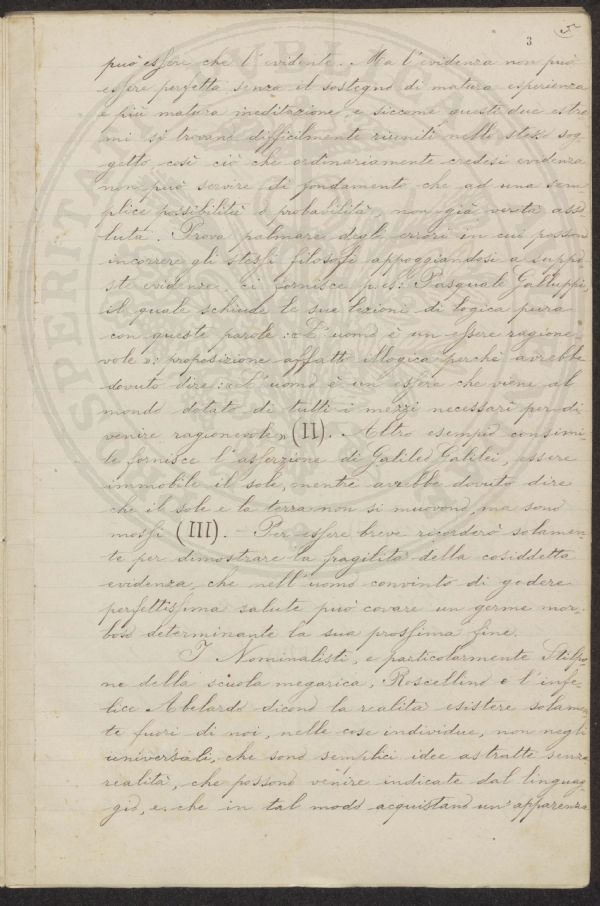 3 5
può essere che l'evidente. Ma l'evidenza non può
essere perfetta senza il sostegno di matura esperienza
e più matura meditazione, e siccome questi due estre
mi si trovano difficilmente riuniti nello stesso sog
getto così ciò che ordinariamente credesi evidenza
non può servire di fondamento che ad una sem
plice possibilità o probabilità, non già verità asso
luta. Prova palmare degli errori in cui possono
incorrere gli stessi filosofi appoggiandosi a suppo
ste evidenze, ci fornisce p. es: Pasquale Galluppi,
il quale schiude le sue lezioni di logica pura
con queste parole: «L'uomo è un essere ragione
vole»: proposizione affatto illogica perchè avrebbe
dovuto dire: «L'uomo è un essere che viene al
mondo dotato di tutti i mezzi necessari per di
venire ragionevole» (II). Altro esempio consimi
le fornisce l'asserzione di Galileo Galilei, essere
immobile il sole, mentre avrebbe dovuto dire
che il sole e la terra non si muovono, ma sono
mossi (III). Per essere breve ricorderò solamen
te per dimostrare la fragilità della cosiddetta
evidenza, che nell'uomo convinto di godere
perfettissima salute può covare un germe mor
boso determinante la sua prossima fine.
I Nominalisti, e particolarmente Stilpo
ne della scuola megarica, Roscellino e l'infe
lice Abelardo dicono la realità esistere solamen
te fuori di noi, nelle cose individue, non negli
universali, che sono semplici idee astratte senza
realità, che possono venire indicate dal linguag
gio, e che in tal modo acquistano un'apparenza
PROSPERITAN
VBLICA